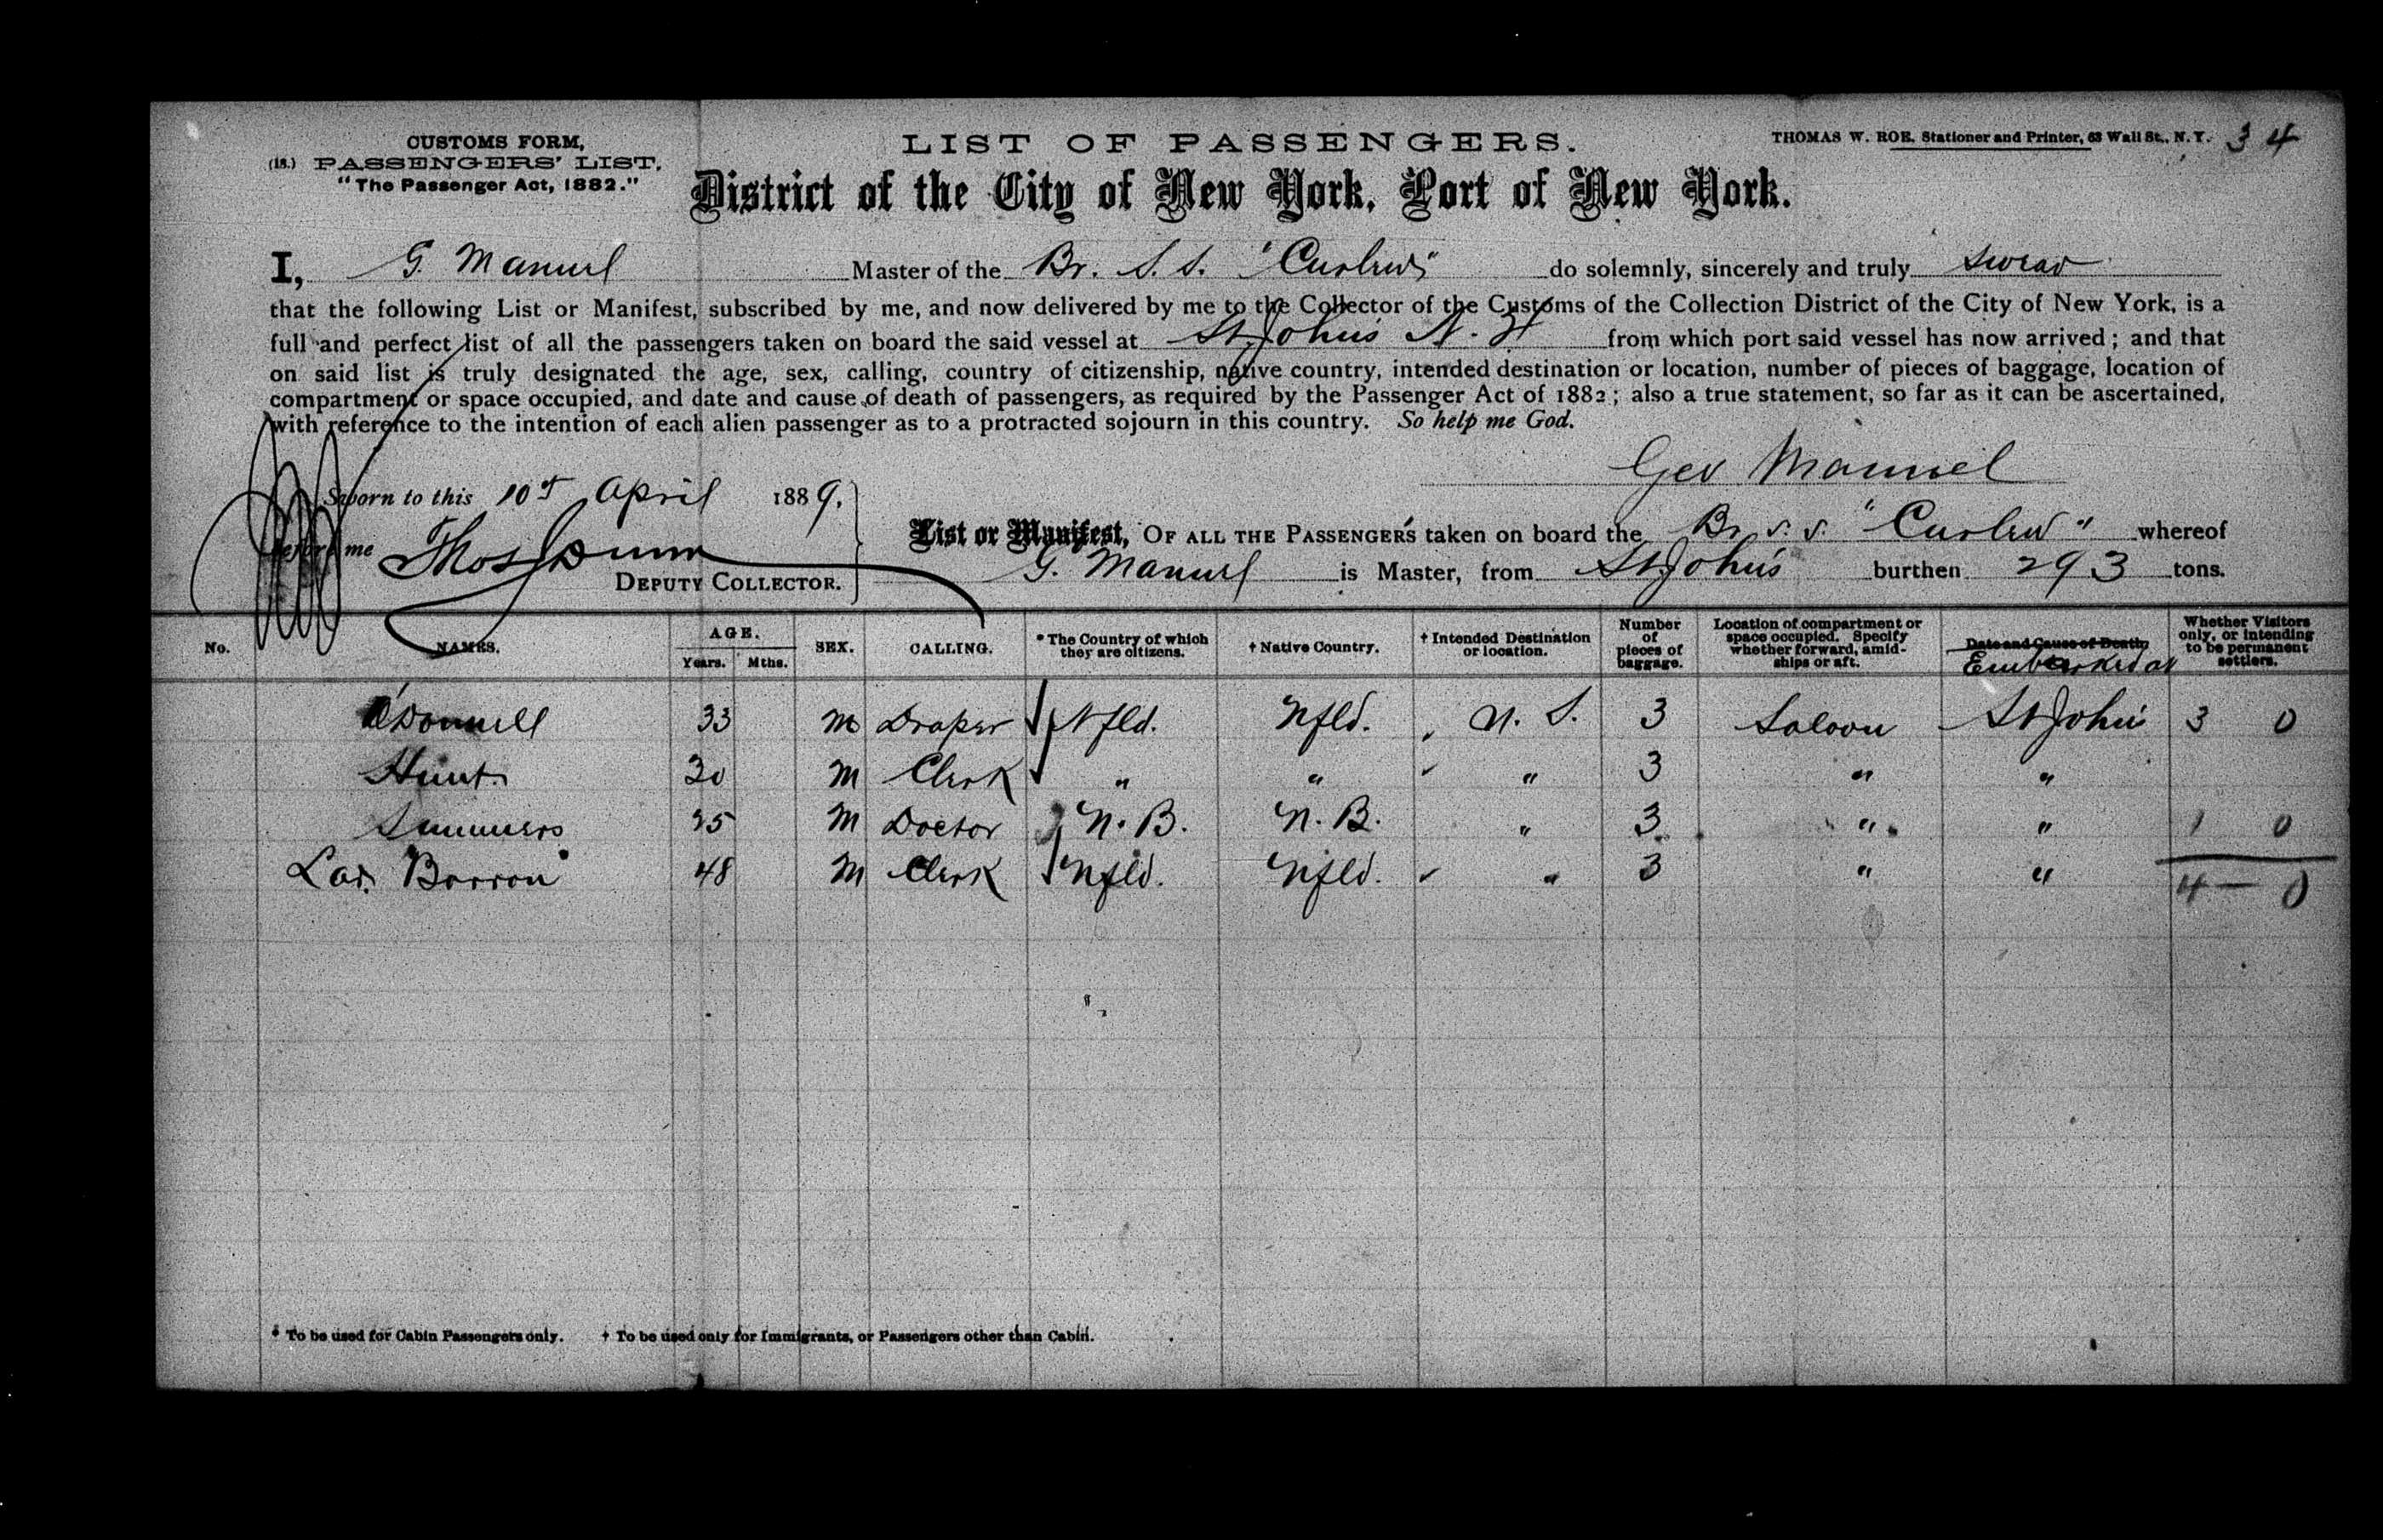 CUSTOMS FORM,
(18.) PASSENGERS' LIST,
"The Passenger Act, 1882."
LIST OF PASSENGERS.
THOMAS W. ROE, Stationer and Printer, 63 Wall St., N. Y. 34
District of the City of New York, Port of New York.
I, G. Manuel Master of the Br. S.S. "Curlew" do solemnly, sincerely and truly swear
that the following List or Manifest, subscribed by me, and now delivered by me to the Collector of the Customs of the Collection District of the City of New York, is a
full and perfect list of all the passengers taken on board the said vessel at St. John's N. F from which port said vessel has now arrived; and that
on said list is truly designated the age, sex, calling, country of citizenship, native country, intended destination or location, number of pieces of baggage, location of
compartment or space occupied, and date and cause of death of passengers, as required by the Passenger Act of 1882; also a true statement, so far as it can be ascertained,
with reference to the intention of each alien passenger as to a protracted sojourn in this country. So help me God.
Geo Manuel
Sworn to this 10th April 1889,
before me Thos Dunn
DEPUTY COLLECTOR.
List or Manifest, OF ALL THE PASSENGERS taken on board the Br. s. s. "Curlew" whereof
G. Manuel is Master, from St. John's burthen 293 tons.
No. NAMES. AGE. Years. Mths. SEX. CALLING. * The Country of which they are citizens. † Native Country. † Intended Destination or location. Number of pieces of baggage. Location of compartment or space occupied. Specify whether forward, amidships or aft. Date and Cause of Death. Embarked at Whether Visitors only, or intending to be permanent settlers.
O'Donnell 33 M Draper Nfld. Nfld. U. S. 3 Saloon St John's 3 0
Hunt 30 M Clerk " " " 3 " "
Summers 35 M Doctor N. B. N. B. " 3 " " 1 0
Barron 48 M Clerk Nfld. Nfld. " 3 " " 4 — 0
* To be used for Cabin Passengers only. † To be used only for Immigrants, or Passengers other than Cabin.